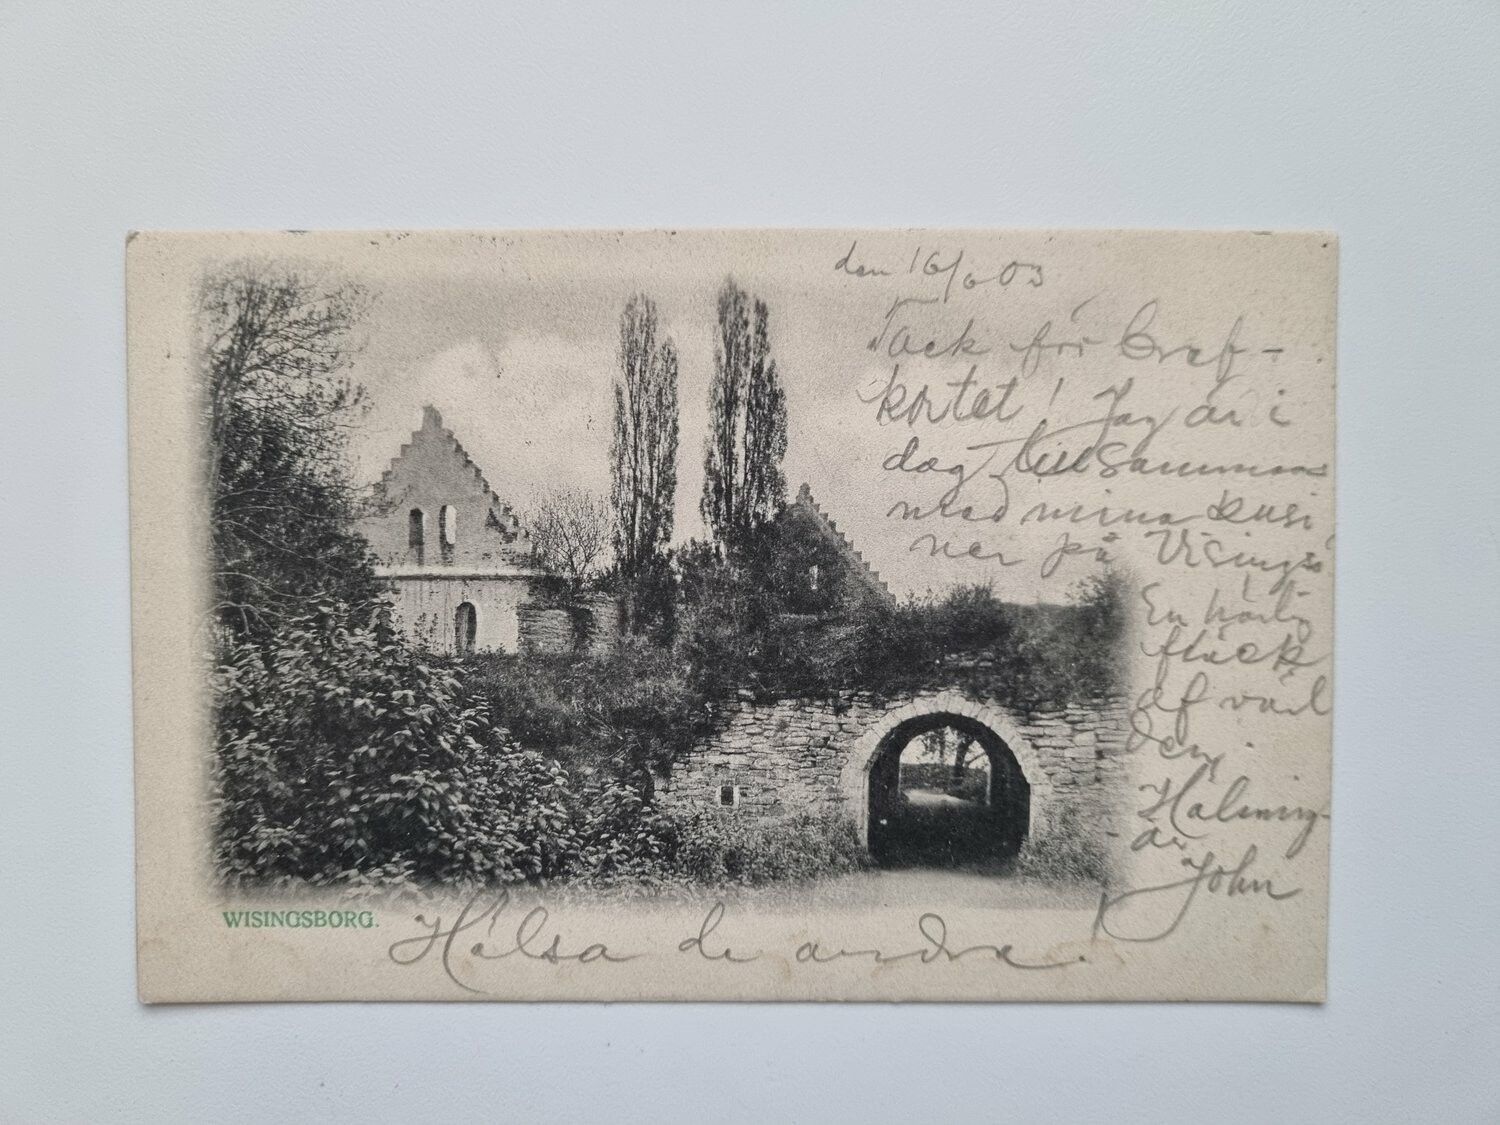 den 16/6 03
Tack för Bref-
kortet! Jag är i
dag tillsammans
med mina kusi
ner på Visingsö
En härlig
fläck
af värl
den.
Hälsning-
ar
John
WISINGSBORG.
Hälsa de andra.